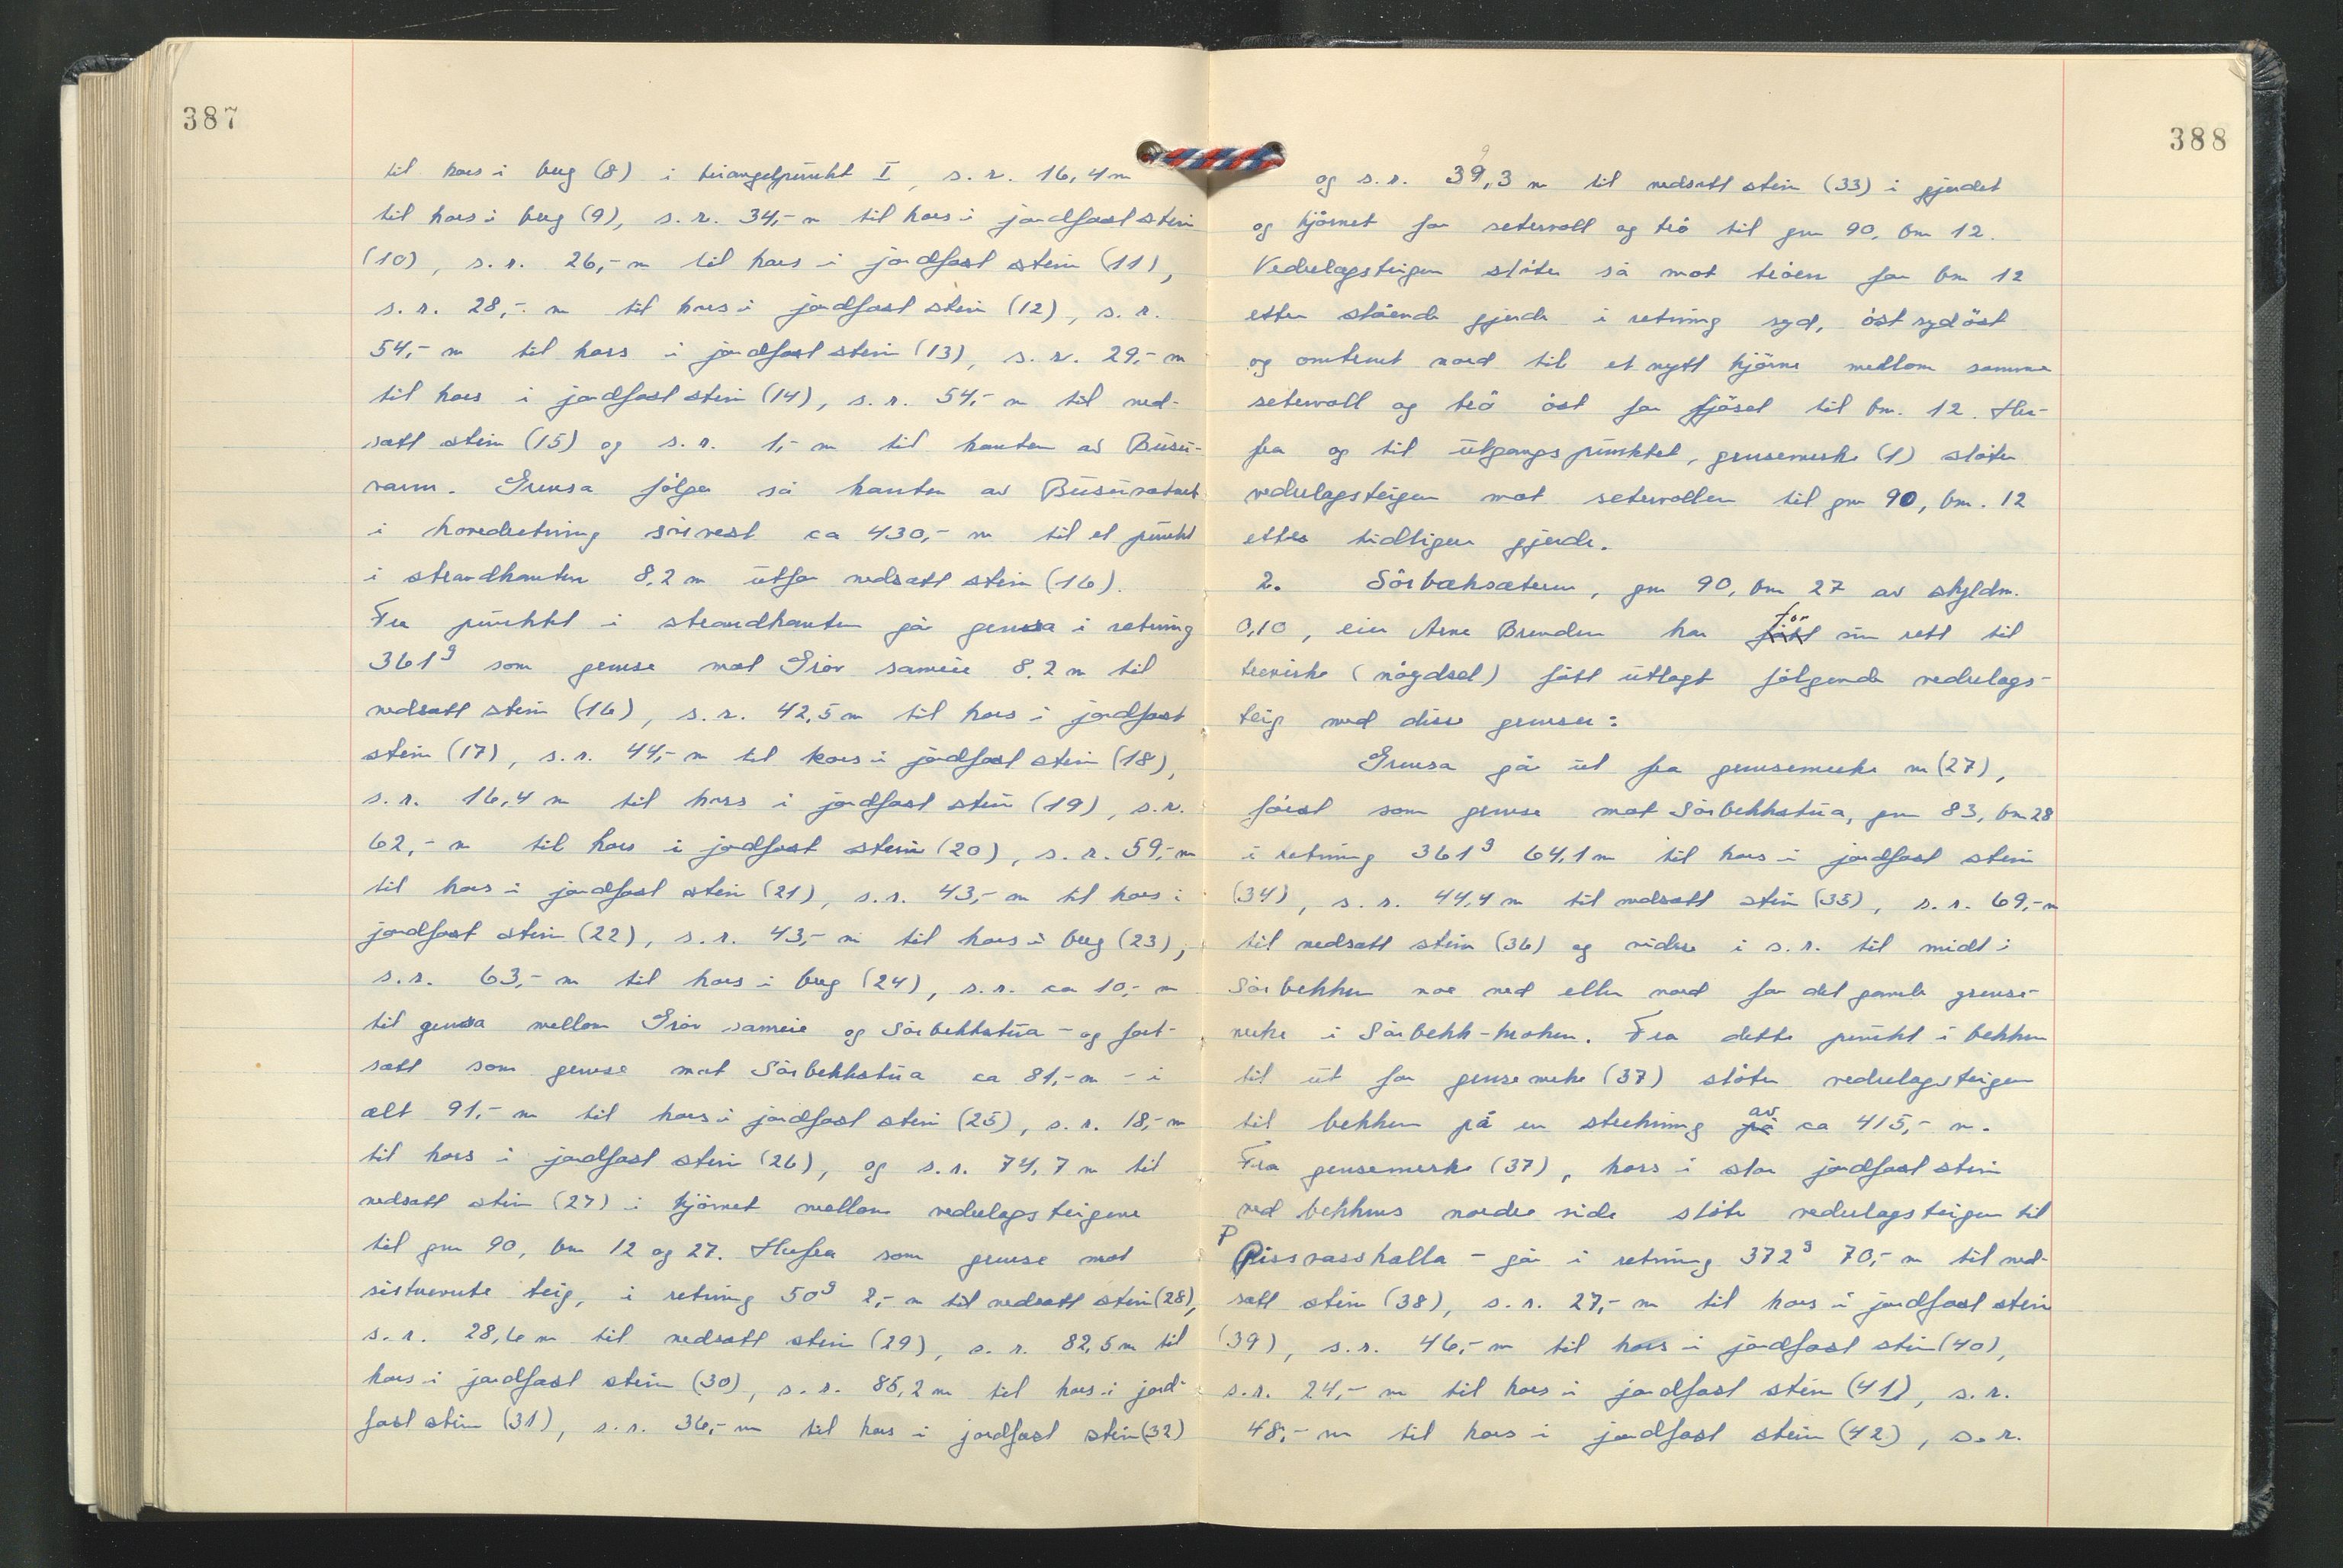 387
til kors i berg (8) i triangelpunkt I, s.r. 16,4 m
til kors i berg (9), s.r. 34,- m til kors i jordfast stein
(10), s.r. 26,- m til kors i jordfast stein (11),
s.r. 28,- m til kors i jordfast stein (12), s.r.
54,- m til kors i jordfast stein (13), s.r. 29,- m
til kors i jordfast stein (14), s.r. 54,- m til ned-
satt stein (15) og s.r. 1,- m til kanten av Busu-
vatnet. Grensa følger så kanten av Busuvatnet
i hovedretning sørvest ca 430,- m til et punkt
i strandkanten 8,2 m utfor nedsatt stein (16).
Fra punktet i strandkanten går grensa i retning
361g som grense mot Grov sameie 8,2 m til
nedsatt stein (16), s.r. 42,5 m til kors i jordfast
stein (17), s.r. 44,- m til kors i jordfast stein (18),
s.r. 16,4 m til kors i jordfast stein (19), s.r.
62,- m til kors i jordfast stein (20), s.r. 59,- m
til kors i jordfast stein (21), s.r. 43,- m til kors i
jordfast stein (22), s.r. 43,- m til kors i berg (23),
s.r. 63,- m til kors i berg (24), s.r. ca 10,- m
til grensa mellom Grov sameie og Sörbekkstua - og fort-
satt som grense mot Sörbekkstua ca 81,- m - i
alt 91,- m til kors i jordfast stein (25), s.r. 18,- m
til kors i jordfast stein (26), og s.r. 74,7 m til
nedsatt stein (27) i hjörnet mellom vedeslagsteigene
til gnr 90, bnr 12 og 27. Herfra som grense mot
sistnevnte teig, i retning 50g 2,- m til nedsatt stein (28),
s.r. 28,6 m til nedsatt stein (29), s.r. 82,5 m til
kors i jordfast stein (30), s.r. 85,2 m til kors i jord-
fast stein (31), s.r. 36,- m til kors i jordfast stein (32)
388
og s.r. 39,3 m til nedsatt stein (33) i gjerdet
og hjörnet for setervoll og trö til gnr 90, bnr 12.
Vedeslagsteigen støter så mot tröen for bnr 12
etter stående gjerde i retning syd, öst sydöst
og omtrent nord til et nytt hjörne mellom samme
setervoll og trö öst for fjöset til bnr. 12. Her-
fra og til utgangspunktet, grensemerke (1) stöter
vedeslagsteigen mot setervollen til gnr 90, bnr. 12
etter tidligere gjerde.
2. Sörbæksæteren, gnr 90, bnr 27 av skyldm.
0,10, eier Arne Brenden har fått for sin rett til
trevirke (nögdsel) fått utlagt fölgende vedeslags-
teig med disse grenser:
Grensa går ut fra grensemerke nr (27),
först som grense mot Sörbekkstua, gnr 83, bnr 28
i retning 361g 64,1 m til kors i jordfast stein
(34), s.r. 44,4 m til nedsatt stein (35), s.r. 69,- m
til nedsatt stein (36) og videre i s.r. til midt i
Sörbekken noe ned eller nord for det gamle grense-
merke i Sörbekk-kroken. Fra dette punkt i bekken
til ut for grensemerke (37) stöter vedeslagsteigen
til bekken på en strekning på av ca 415,- m.
Fra grensemerke (37), kors i stor jordfast stein
ved bekkens nordre side stöter vedeslagsteigen til
P
Pissrasshalla - går i retning 372g 70,- m til ned-
satt stein (38), s.r. 27,- m til kors i jordfast stein
(39), s.r. 46,- m til kors i jordfast stein (40),
s.r. 24,- m til kors i jordfast stein (41), s.r.
48,- m til kors i jordfast stein (42), s.r.